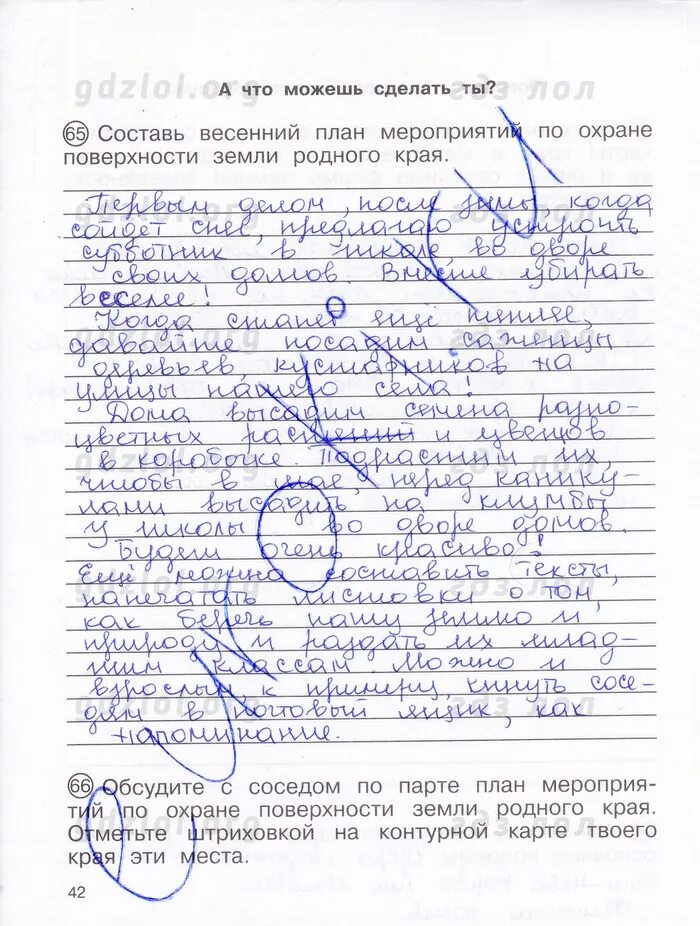 gdzlol.org гдз лол
А что можешь сделать ты?
65 Составь весенний план мероприятий по охране
поверхности земли родного края.
Первым делом, после зимы, когда
сойдет снег, предлагаю устроить
субботник в школе, во дворе
своих домов. Вместе убирать
веселее!
Когда станет еще теплее
давайте посадим саженцы
деревьев кустарников на
улицы нашего села!
Дома высадим семена разно-
цветных растений и цветов
в коробочке. Подрастим их,
чтобы в мае, перед канику-
лами высадить на клумбы
у школы во дворе домов.
Будет очень красиво!
Ещё можно составить тексты,
напечатать листовки о том,
как беречь нашу землю и
природу и раздать их млад-
шим классам. Можно и
взрослым, к примеру, кинуть сосе-
дям в почтовый ящик, как
напоминание.
66 Обсудите с соседом по парте план мероприя-
тий по охране поверхности земли родного края.
Отметьте штриховкой на контурной карте твоего
края эти места.
42